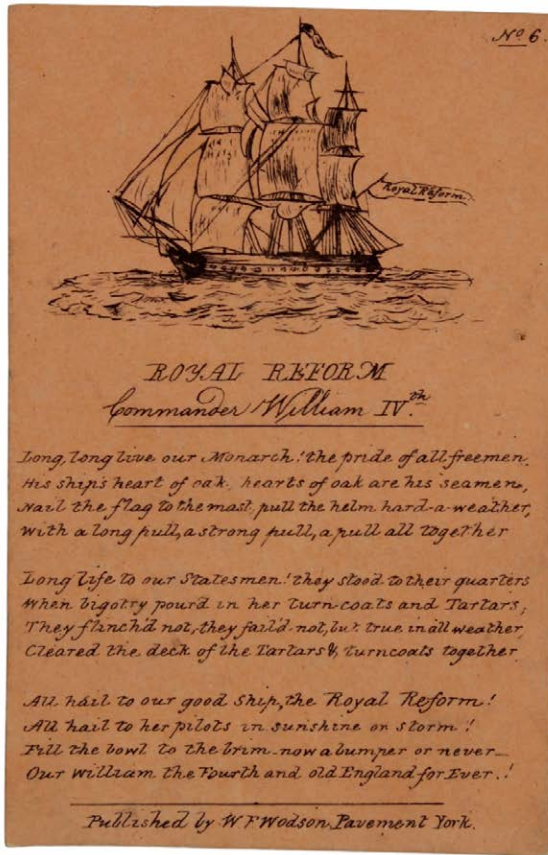 No 6.
Royal Reform
ROYAL REFORM
Commander William IV.th
Long, long live our Monarch! the pride of all freemen.
His ship's heart of oak, hearts of oak are his seamen,
Nail the flag to the mast, pull the helm hard-a-weather,
With a long pull, a strong pull, a pull all together
Long life to our Statesmen! they stood to their quarters
When bigotry pour'd in her turn-coats and Tartars,
They flinch'd not, they fail'd not, but true in all weather,
Cleared the deck of the Tartars &, turncoats together
All hail to our good Ship, the Royal Reform!
All hail to her pilots in sunshine or storm!
Fill the bowl to the brim - now a bumper or never -
Our William the Fourth and old England for Ever.!
Published by W F Wodson, Pavement York.